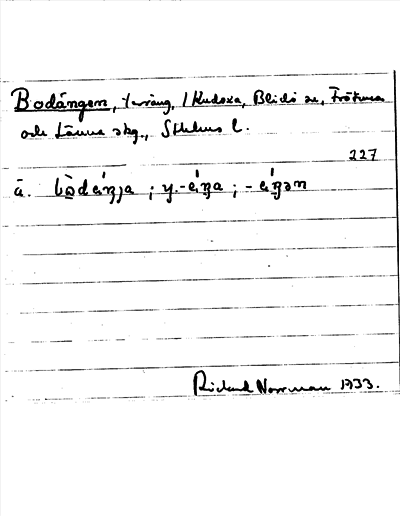 Bodången, terräng, 1 Kudoxa, Blidö sn, Frötuna
och Länna skg., Sthlms l.
227
ä. bòdéŋja ; y. -éŋa ; -éŋən
Rickard Norrman 1933.